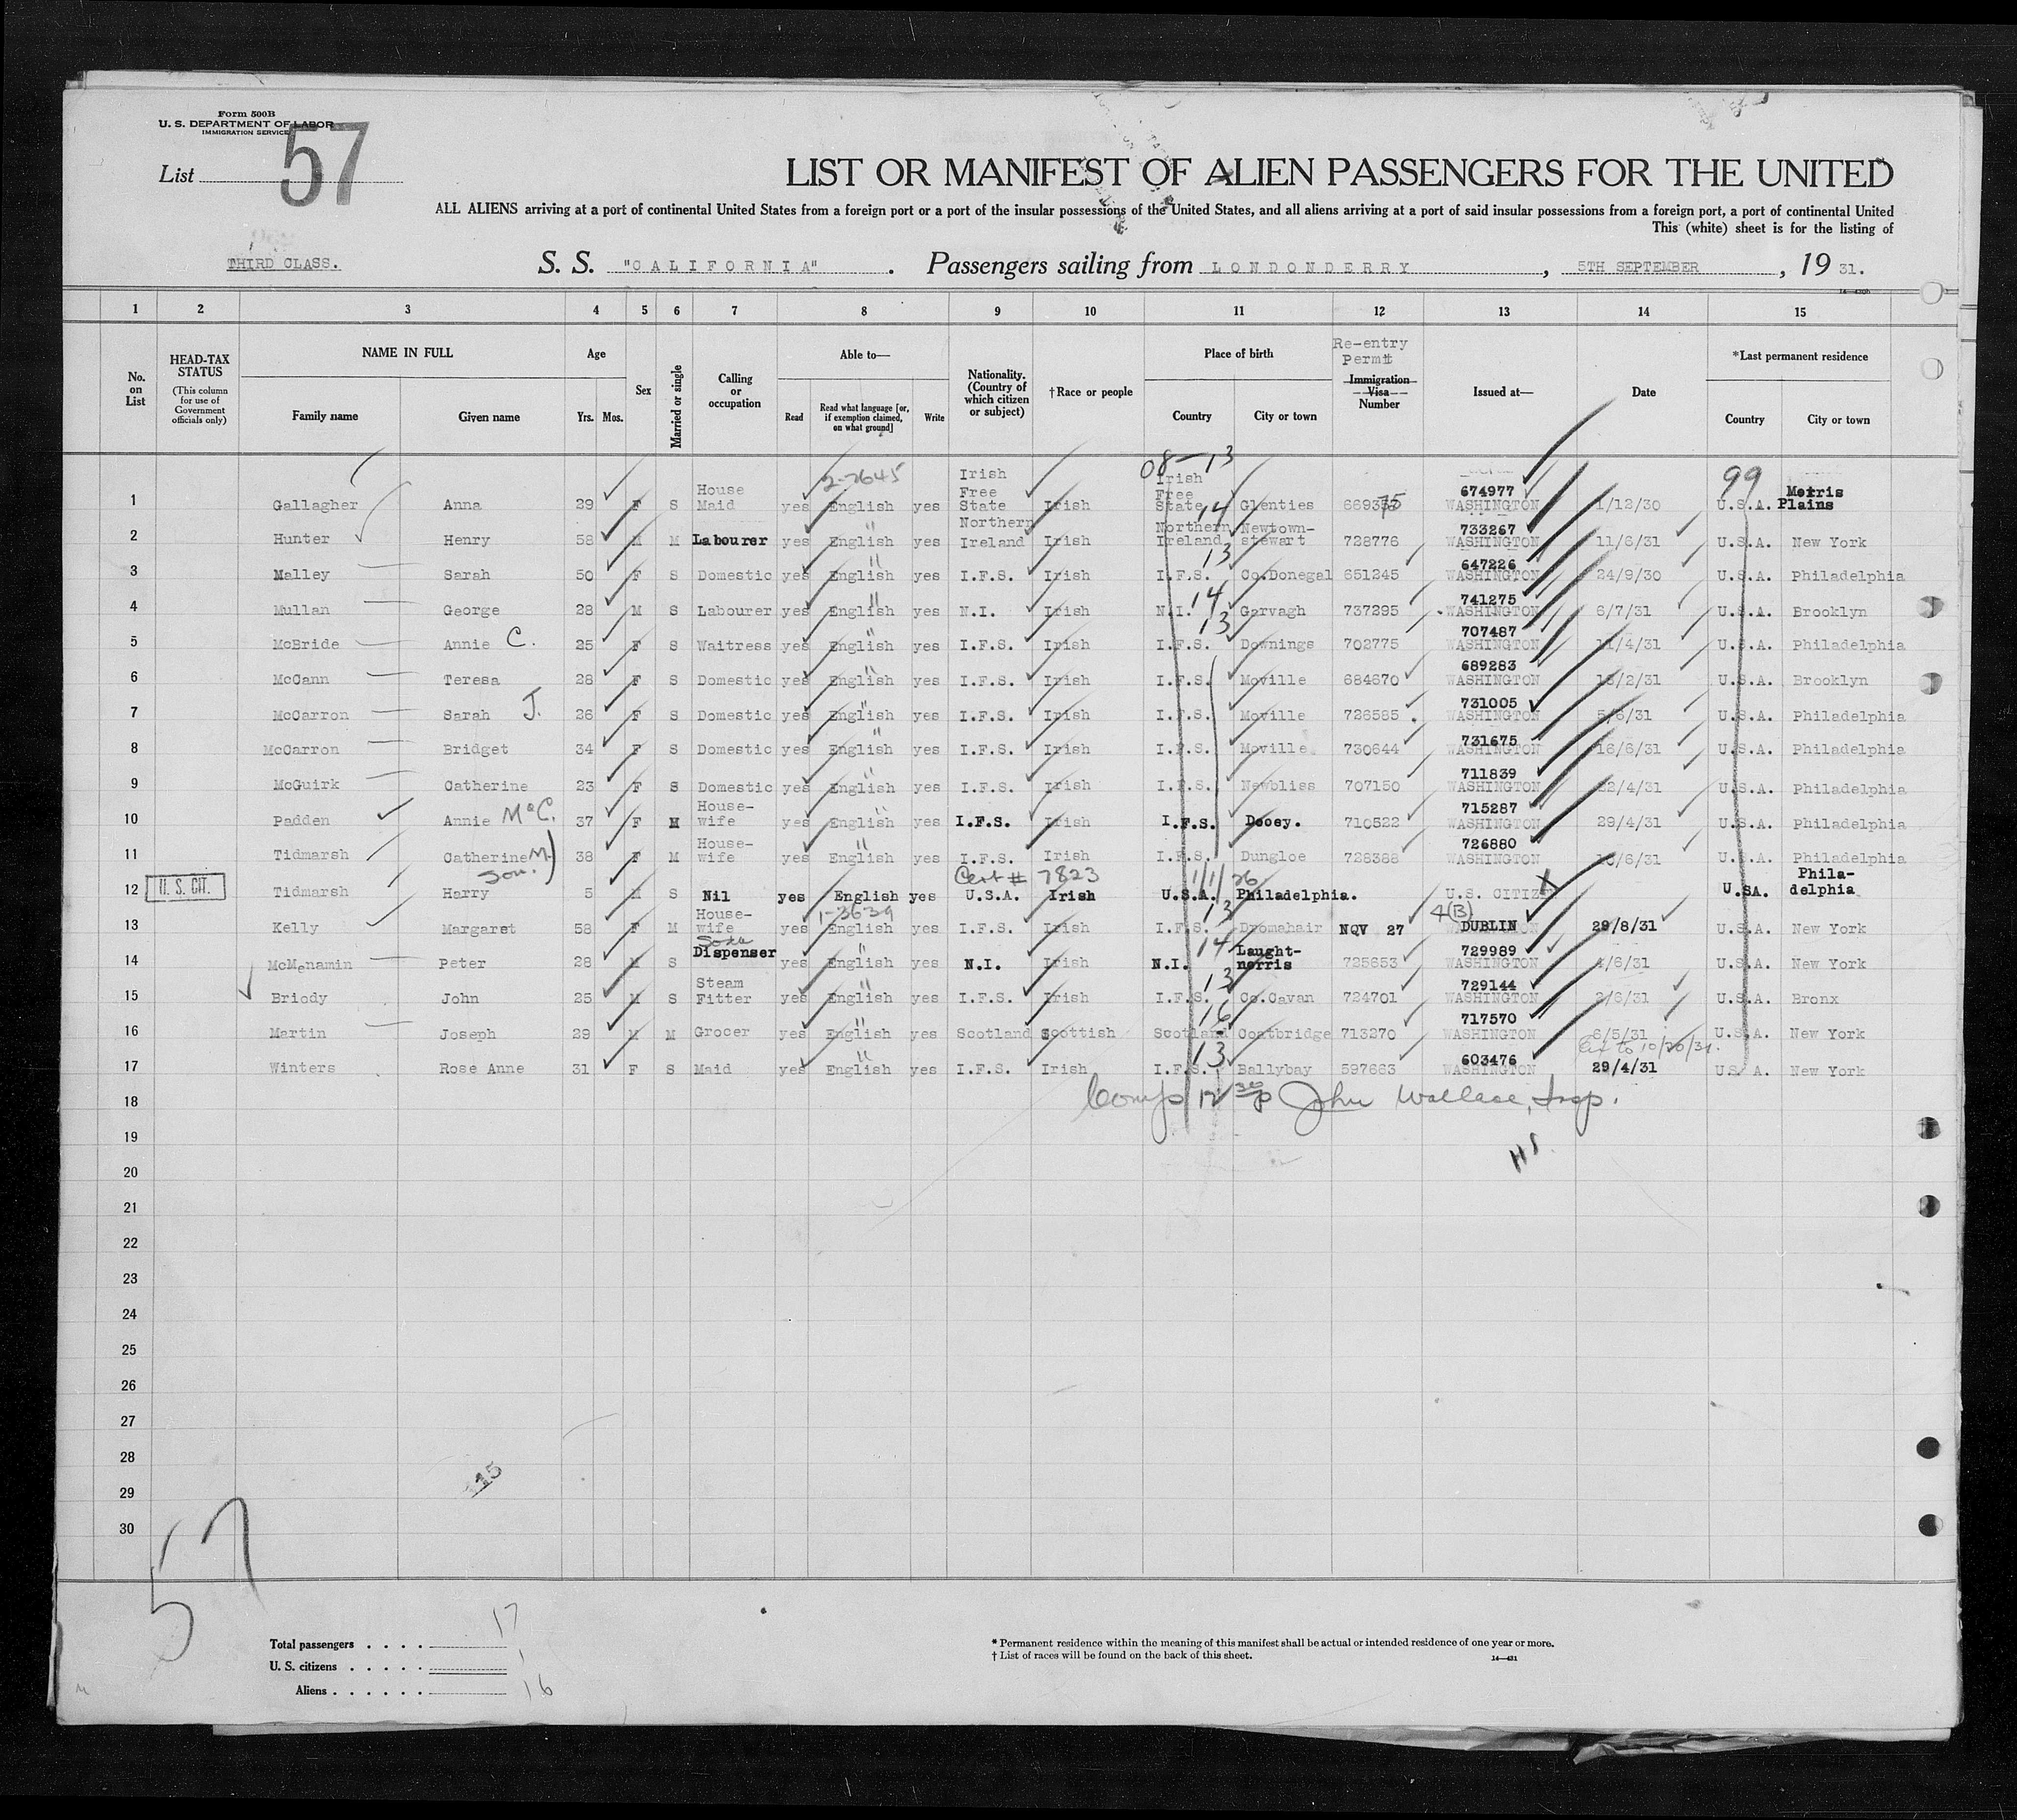 Form 500B
U. S. DEPARTMENT OF LABOR
IMMIGRATION SERVICE
List 57
LIST OR MANIFEST OF ALIEN PASSENGERS FOR THE UNITED
ALL ALIENS arriving at a port of continental United States from a foreign port or a port of the insular possessions of the United States, and all aliens arriving at a port of said insular possessions from a foreign port, a port of continental United
This (white) sheet is for the listing of
THIRD CLASS. S. S. "CALIFORNIA". Passengers sailing from LONDONDERRY, 5TH SEPTEMBER, 19 31.
1 2 3 4 5 6 7 8 9 10 11 12 13 14 15
No. on List
HEAD-TAX STATUS
(This column for use of Government officials only)
NAME IN FULL
Family name Given name
Age
Yrs. Mos.
Sex
Married or single
Calling or occupation
Able to—
Read Read what language [or, if exemption claimed, on what ground] Write
Nationality. (Country of which citizen or subject)
†Race or people
Place of birth
Country City or town
Re-entry Permit
Immigration Visa Number
Issued at—
Date
*Last permanent residence
Country City or town
2-7645 08-13 99
1 Gallagher Anna 29 F S House Maid yes English yes Irish Free State Irish Irish Free State Glenties 669375 674977 WASHINGTON 1/12/30 U.S.A. Morris Plains
2 Hunter Henry 58 M M Labourer yes English " yes Northern Ireland Irish 14 Northern Ireland Newtown-stewart 728776 733267 WASHINGTON 11/6/31 U.S.A. New York
3 Malley Sarah 50 F S Domestic yes English " yes I.F.S. Irish 13 I.F.S. Co.Donegal 651245 647226 WASHINGTON 24/9/30 U.S.A. Philadelphia
4 Mullan George 28 M S Labourer yes English " yes N.I. Irish 14 N.I. Garvagh 737295 741275 WASHINGTON 6/7/31 U.S.A. Brooklyn
5 McBride Annie C. 25 F S Waitress yes English " yes I.F.S. Irish 13 I.F.S. Downings 702775 707487 WASHINGTON 11/4/31 U.S.A. Philadelphia
6 McCann Teresa 28 F S Domestic yes English " yes I.F.S. Irish I.F.S. Moville 684670 689283 WASHINGTON /2/31 U.S.A. Brooklyn
7 McCarron Sarah J. 26 F S Domestic yes English " yes I.F.S. Irish I.F.S. Moville 726585 731005 WASHINGTON 5/6/31 U.S.A. Philadelphia
8 McCarron Bridget 34 F S Domestic yes English " yes I.F.S. Irish I.F.S. Moville. 730644 731675 WASHINGTON 16/6/31 U.S.A. Philadelphia
9 McGuirk Catherine 23 F S Domestic yes English " yes I.F.S. Irish I.F.S. Newbliss 707150 711839 WASHINGTON 22/4/31 U.S.A. Philadelphia
10 Padden Annie McC. 37 F M House-wife yes English " yes I.F.S. Irish I.F.S. Dooey. 710522 715287 WASHINGTON 29/4/31 U.S.A. Philadelphia
11 Tidmarsh Catherine M.) 38 F M House-wife yes English " yes I.F.S. Irish I.F.S. Dungloe 728388 726880 WASHINGTON /6/31 U.S.A. Philadelphia
Son. Cert # 7823 1/1/26
12 U. S. CIT. Tidmarsh Harry 5 M S Nil yes English yes U.S.A. Irish U.S.A. Philadelphia. U.S. CITIZEN U.SA. Phila-delphia
1-3639 13 4(B)
13 Kelly Margaret 58 F M House-wife yes English yes I.F.S. Irish I.F.S. Dromahair NQV 27 DUBLIN WASHINGTON 29/8/31 U.S.A. New York
14 McMenamin Peter 28 M S Soda Dispenser yes English " yes N.I. Irish 14 N.I. Laught-norris 725653 729989 WASHINGTON 4/6/31 U.S.A. New York
15 Briody John 25 M S Steam Fitter yes English " yes I.F.S. Irish 13 I.F.S. Co.Cavan 724701 729144 WASHINGTON 2/6/31 U.S.A. Bronx
16 Martin Joseph 29 M M Grocer yes English " yes Scotland Scottish 16 Scotland Coatbridge 713270 717570 WASHINGTON 6/5/31 U.S.A. New York
Ext to 10/20/31.
17 Winters Rose Anne 31 F S Maid yes English " yes I.F.S. Irish 13 I.F.S. Ballybay 597663 603476 WASHINGTON 29/4/31 U.S.A. New York
18 John Wallace, Insp.
19
20
21
22
23
24
25
26
27
28
29
30
15
57
Total passengers . . . . 17
U. S. citizens . . . . . 1
Aliens . . . . . . 16
* Permanent residence within the meaning of this manifest shall be actual or intended residence of one year or more.
† List of races will be found on the back of this sheet.
14—431